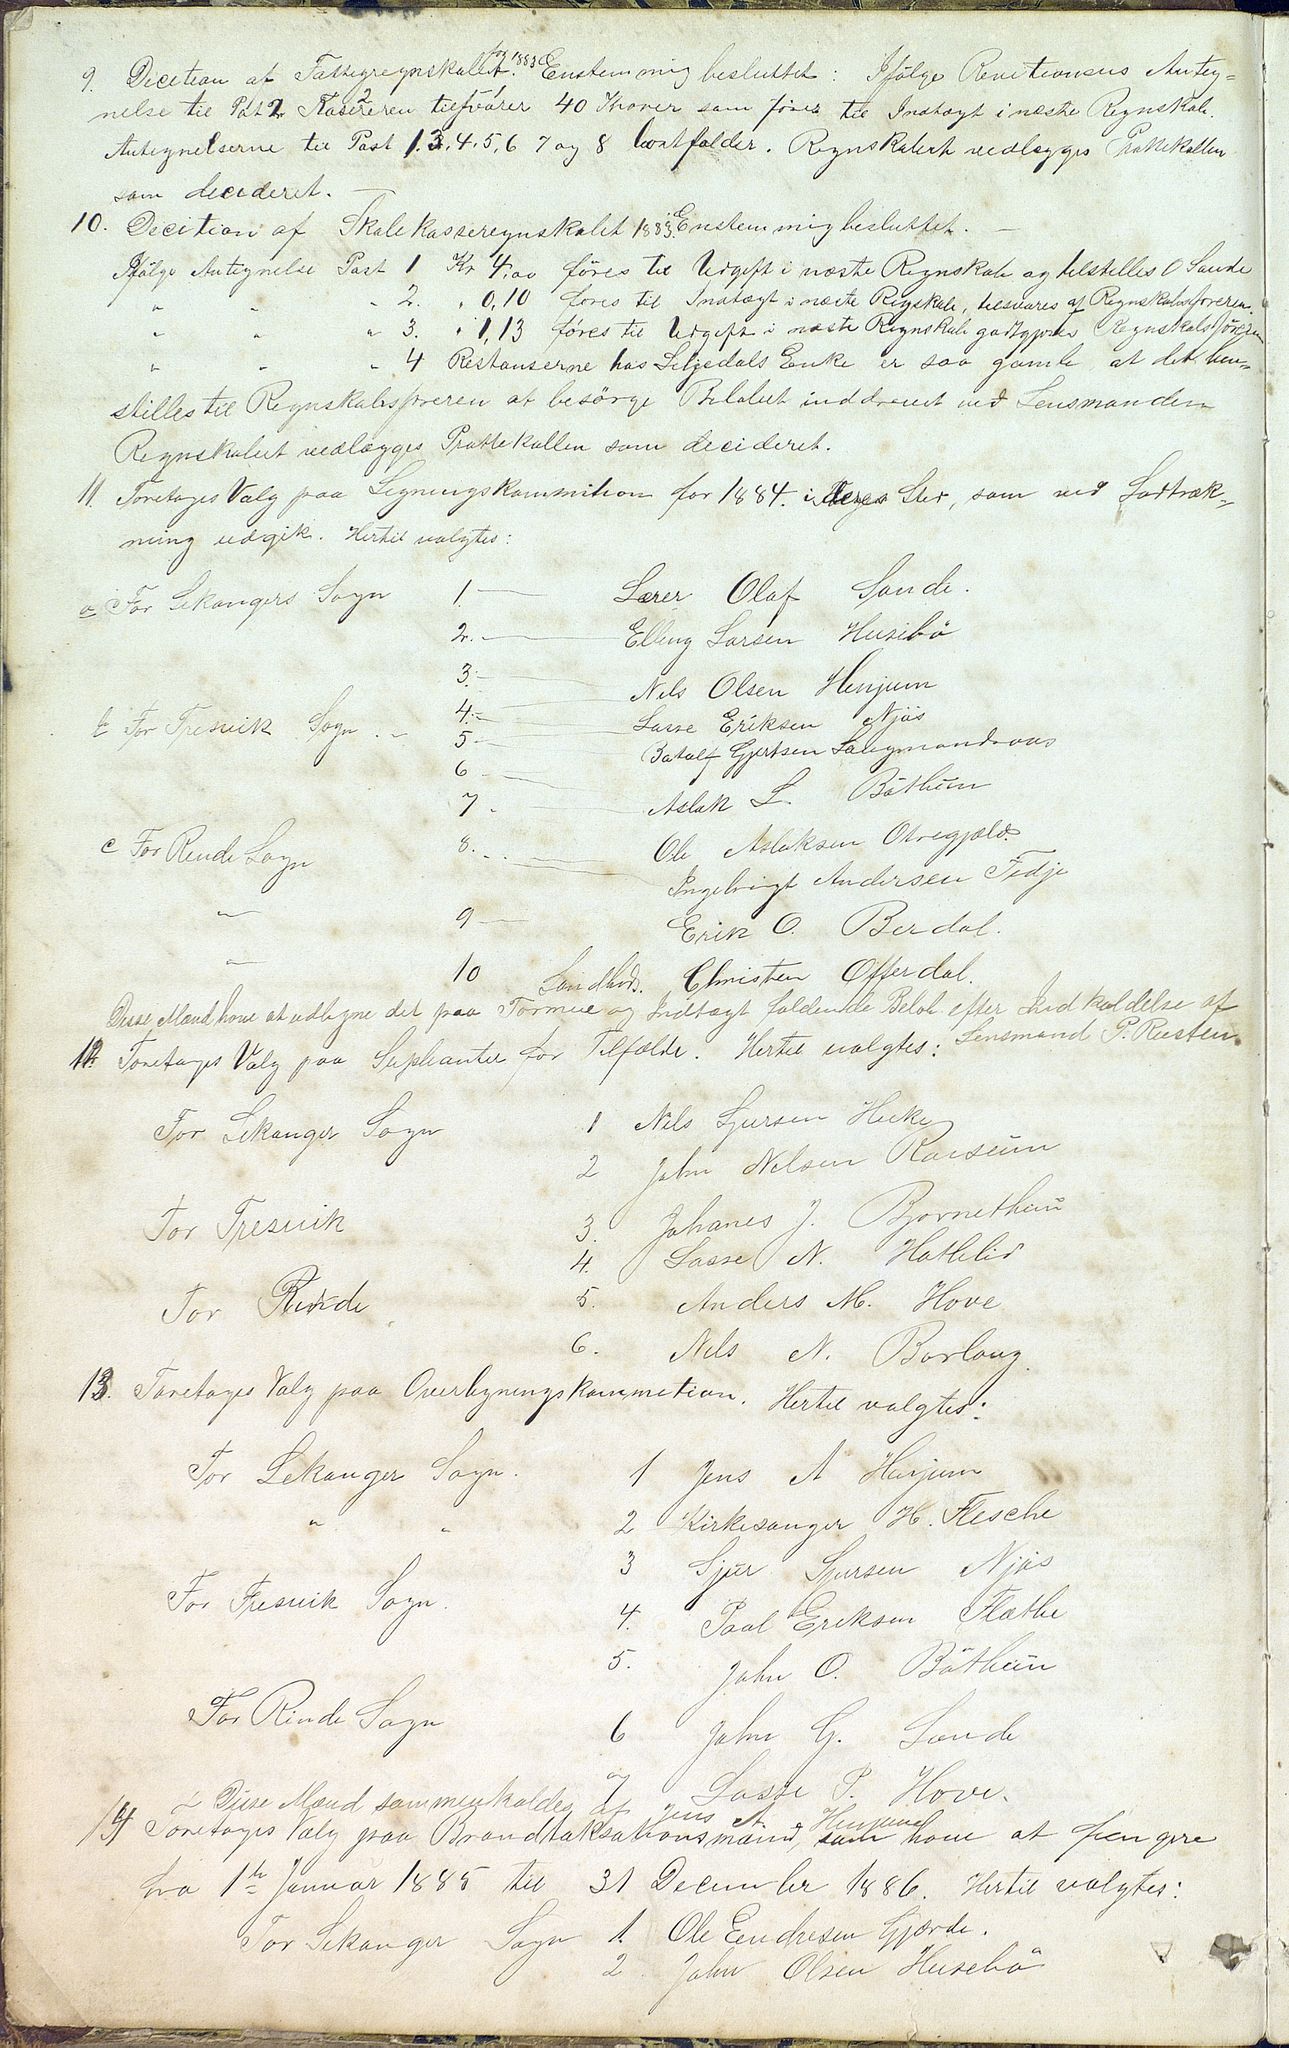 9. Decition af Fattigregnskabet for 1883. Enstemmig besluttet: Ifølge Revitionens Anteg-
nelse til Post 2 Kasereren tilsvarer 40 Kroner som føres til Indtægt i næste Regnskab.
Antegnelserne til Post 1. 3. 4. 5, 6 7 og 8 bortfalder. Regnskabet vedlægges Protokollen
som decideret. —
10. Decition af Skolekasseregnskabet 1883. Enstemmig besluttet. —
Ifølge Antegnelse Post 1 Kr 4,00 føres til Udgift i næste Regnskab og tilstilles O Sande
" " " 2. " 0,10 føres til Indtægt i næste Regskab, tilsvares af Regnskabsføreren.
" " " 3. " 1,13 føres til Udgift i næste Regnskab godtgjøres Regnskabsføreren
" " " 4 Restanserne hos Enke er saa gamle at det hen-
stilles til Regnskabsføreren at besörge Beløbet inddrevet ved Lensmanden
Regnskabet vedlægges Prottekollen som decideret.
11. Foretoges Valg paa Ligningskommition for 1884. i deres Sted, som ved Lodtræk-
ning udgik. Hertil valgtes:
a For Lekangers Sogn 1. — Lærer Olaf Sande.
2. — Elling Larsen Husibö
3. — Nils Olsen Henjum
4. — Lasse Eriksen Njös
b For Fresvik Sogn 5 — Botolf Gjertsen
6 — Aslak L. Böthun
7 — Ole Aslaksen
c For Rinde Sogn 8. — Ingebrigt Andersen Fedje
" 9 — Erik O. Berdal.
" 10 Landh. Christen Offerdal.
Disse Mænd have at udligne det paa Formue og Indtægt faldende Beløb efter Indkaldelse af
Lensmand P. Rusten.
12. Foretoges Valg paa Suplianter for Tilfælde. Hertil valgtes:
For Lekanger Sogn 1 Nils Sjursen
2 John Nilsen
For Fresvik 3. Johanes J. Bjornethun
4. Lasse N. Hatlelid
For Rinde 5. Anders M. Hove
6. Nils N. Borlaug.
13. Foretoges Valg paa Overligningskommetion. Hertil valgtes:
For Lekanger Sogn. 1 Jens A Henjum
" " 2 Kirkesanger H. Flesche
3 Sjur Sjursen Njös
For Fresvik Sogn. 4. Paal Eriksen Flæthe
5. John O. Böthun
For Rinde Sogn 6 John G. Sande
" 7 Lasse P. Hove.
Disse Mænd sammenkaldes af Jens A Henjum
14 Foretoges Valg paa Brandtaksationsmænd, som have at fungere
fra 1ste Januar 1885 til 31 December 1886. Hertil valgtes:
For Lekanger Sogn 1. Ole Endresen Gjærde.
2 John Olsen Husebö